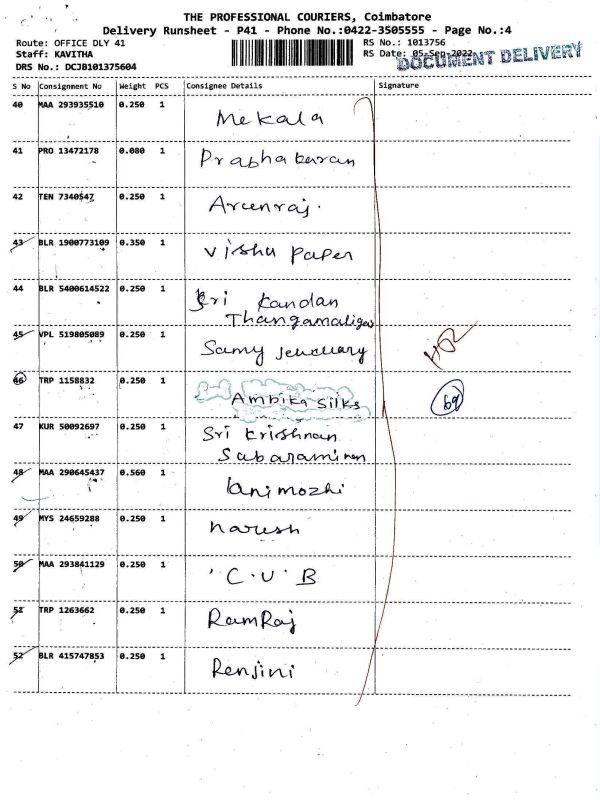 THE PROFESSIONAL COURIERS, Coimbatore
Delivery Runsheet - P41 - Phone No.:0422-3505555 - Page No.:4
Route: OFFICE DLY 41 RS No.: 1013756
Staff: KAVITHA RS Date: 05-Sep-2022
DOCUMENT DELIVERY
DRS No.: DCJB101375604
S No Consignment No Weight PCS Consignee Details Signature
40 MAA 293935510 0.250 1 Mekala
41 PRO 13472178 0.080 1 Prabhakaran
42 TEN 7340547 0.250 1 Arunraj.
43 BLR 1900773109 0.350 1 Vishu paper
44 BLR 5400614522 0.250 1 Sri Kandan
Thangamaligai
45 VPL 519805089 0.250 1 Samy jewellary
46 TRP 1158832 0.250 1 Ambika silks 69
47 KUR 50092697 0.250 1 Sri Krishnan
48 MAA 290645437 0.560 1 Kanimozhi
49 MYS 24659288 0.250 1 naresh
50 MAA 293841129 0.250 1 C.U.B
51 TRP 1263662 0.250 1 RamRaj
52 BLR 415747853 0.250 1 Renjini